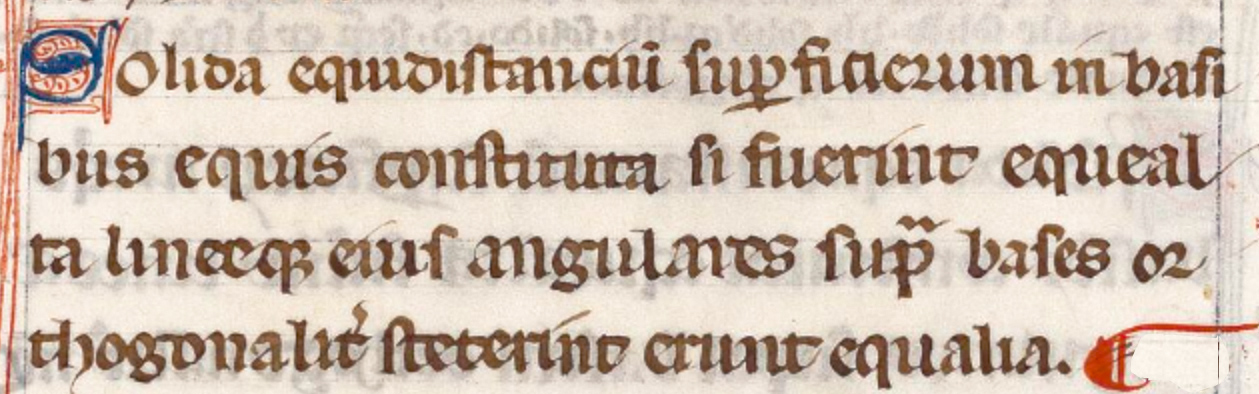 SOlida equidistanciū suꝑficierum in basi
bus equis constituta si fuerint equeal
ta lineeqꝫ eius angulares sup̄ bases or
thogonalit͛ steterint erunt equalia. ¶